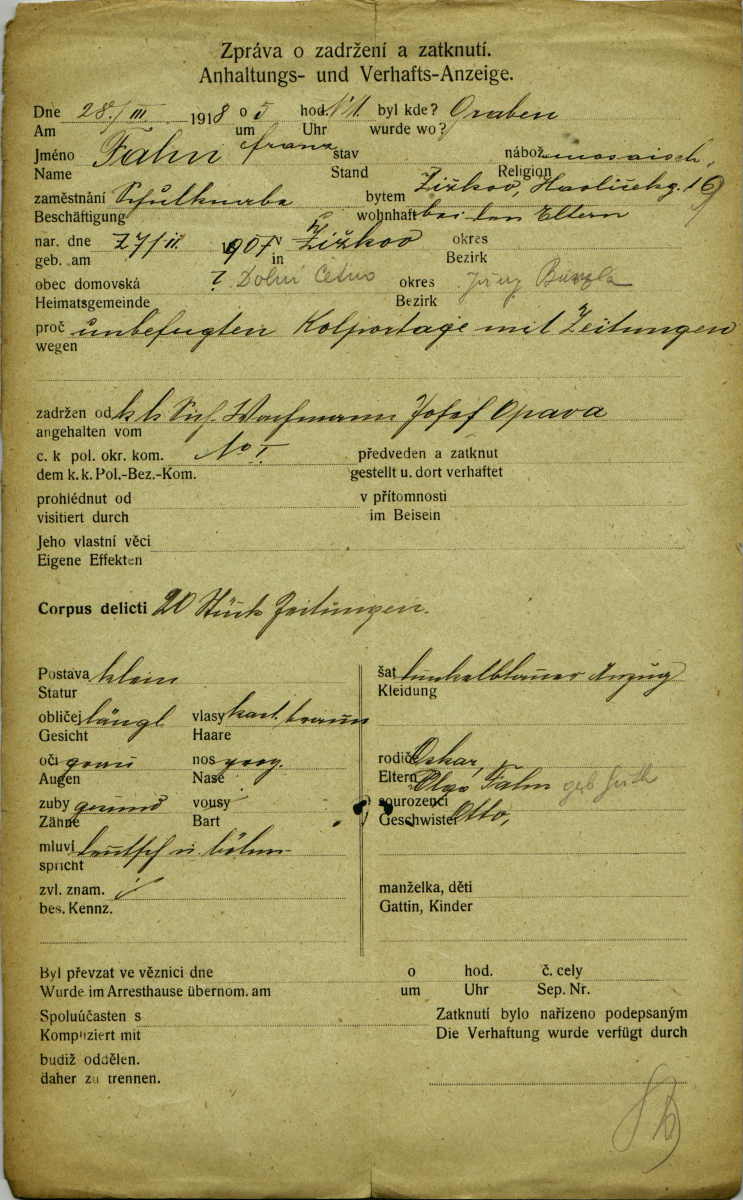 Zpráva o zadržení a zatknutí.
Anhaltungs- und Verhafts-Anzeige.
Dne 28./III. 1918 o 5 hod. N.M. byl kde? Graben
Am um Uhr wurde wo?
Jméno Fahn Franz stav nábož. mosaisch,
Name Stand Religion
zaměstnání Schulknabe bytem Žižkov, Havlíčekg. 16
Beschäftigung wohnhaft bei den Eltern
nar. dne 27/II. 1907 v Žižkov okres
geb. am in Bezirk
obec domovská ? Dolní Cetno okres Jung Bunzla
Heimatsgemeinde Bezirk
proč unbefugten Kolportage mit Zeitungen
wegen
zadržen od k k Sich. Wachmann Josef Opava
angehalten vom
c. k pol. okr. kom. No I. předveden a zatknut
dem k. k. Pol.-Bez.-Kom. gestellt u. dort verhaftet
prohlédnut od v přítomnosti
visitiert durch im Beisein
Jeho vlastní věci
Eigene Effekten
Corpus delicti 20 Stück Zeitungen.
Postava klein šat dunkelblauer Anzug
Statur Kleidung
obličej längl. vlasy kast. braun
Gesicht Haare
oči grau nos prop. rodiče Oskar,
Augen Nase Eltern Olga Fahn geb
zuby gesund vousy sourozenci
Zähne Bart Geschwister Otto,
mluví deutsch u. böhm
spricht
zvl. znam. manželka, děti
bes. Kennz. Gattin, Kinder
Byl převzat ve věznici dne o hod. č. cely
Wurde im Arresthause übernom. am um Uhr Sep. Nr.
Spoluúčasten s Zatknutí bylo nařízeno podepsaným
Kompliziert mit Die Verhaftung wurde verfügt durch
budiž oddělen.
daher zu trennen.